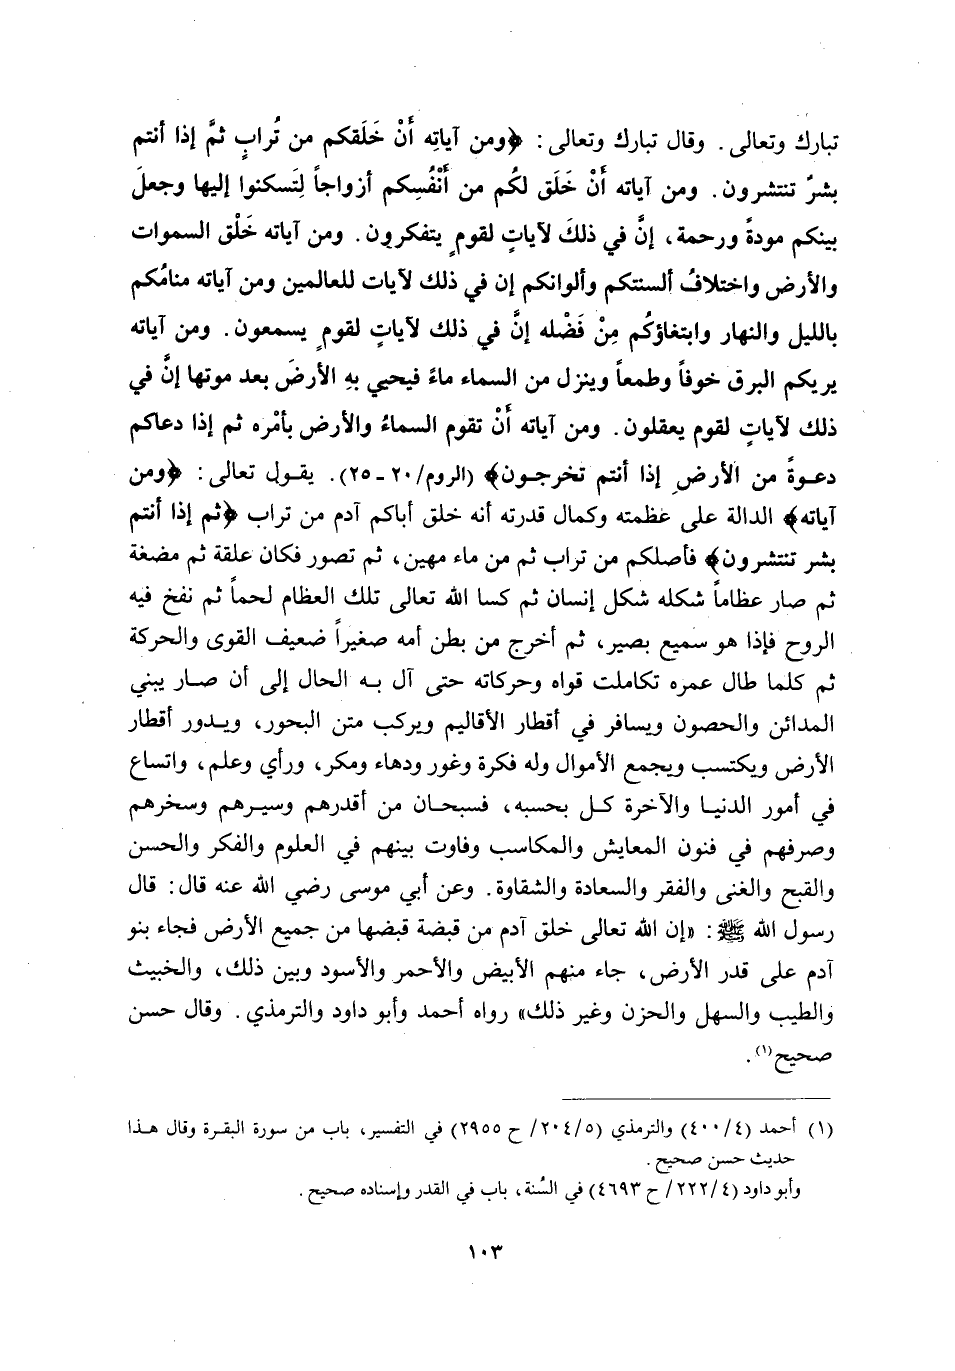 تبارك وتعالى. وقال تبارك وتعالى: ﴿ومن آياتِه أَنْ خَلَقكم من تُرابٍ ثمَّ إذا أنتم
بشرٌ تنتشرون. ومن آياته أَنْ خَلَق لكُم من أَنْفُسِكم أزواجاً لِتَسكنوا إليها وجعلَ
بينكم مودةً ورحمة، إنَّ في ذلكَ لآياتٍ لقومٍ يتفكرون. ومن آياته خَلْق السموات
والأرض واختلافُ ألسنتكم وألوانكم إن في ذلك لآيات للعالمين ومن آياته منامُكم
بالليل والنهار وابتغاؤكُم مِنْ فَضْله إنَّ في ذلك لآياتٍ لقومٍ يسمعون. ومن آياته
يريكم البرق خوفاً وطمعاً وينزل من السماء ماءً فيحيي بهِ الأرضَ بعد موتها إنَّ في
ذلك لآياتٍ لقوم يعقلون. ومن آياته أَنْ تقوم السماءُ والأرض بأمْره ثم إذا دعاكم
دعوةً من الأرضِ إذا أنتم تخرجون﴾ (الروم/٢٠ـ٢٥). يقول تعالى: ﴿ومن
آياته﴾ الدالة على عظمته وكمال قدرته أنه خلق أباكم آدم من تراب ﴿ثم إذا أنتم
بشر تنتشرون﴾ فأصلكم من تراب ثم من ماء مهين، ثم تصور فكان علقة ثم مضغة
ثم صار عظاماً شكله شكل إنسان ثم كسا الله تعالى تلك العظام لحماً ثم نفخ فيه
الروح فإذا هو سميع بصير، ثم أخرج من بطن أمه صغيراً ضعيف القوى والحركة
ثم كلما طال عمره تكاملت قواه وحركاته حتى آل به الحال إلى أن صار يبني
المدائن والحصون ويسافر في أقطار الأقاليم ويركب متن البحور، ويدور أقطار
الأرض ويكتسب ويجمع الأموال وله فكرة وغور ودهاء ومكر، ورأي وعلم، واتساع
في أمور الدنيا والآخرة كل بحسبه، فسبحان من أقدرهم وسيرهم وسخرهم
وصرفهم في فنون المعايش والمكاسب وفاوت بينهم في العلوم والفكر والحسن
والقبح والغنى والفقر والسعادة والشقاوة. وعن أبي موسى رضي الله عنه قال: قال
رسول الله ﷺ: «إن الله تعالى خلق آدم من قبضة قبضها من جميع الأرض فجاء بنو
آدم على قدر الأرض، جاء منهم الأبيض والأحمر والأسود وبين ذلك، والخبيث
والطيب والسهل والحزن وغير ذلك» رواه أحمد وأبو داود والترمذي. وقال حسن
صحيح(١).
(١) أحمد (٤/٤٠٠) والترمذي (٥/٢٠٤/ ح ٢٩٥٥) في التفسير، باب من سورة البقرة وقال هذا
حديث حسن صحيح.
وأبو داود (٤/٢٢٢/ ح ٤٦٩٣) في السُنة، باب في القدر وإسناده صحيح.
١٠٣